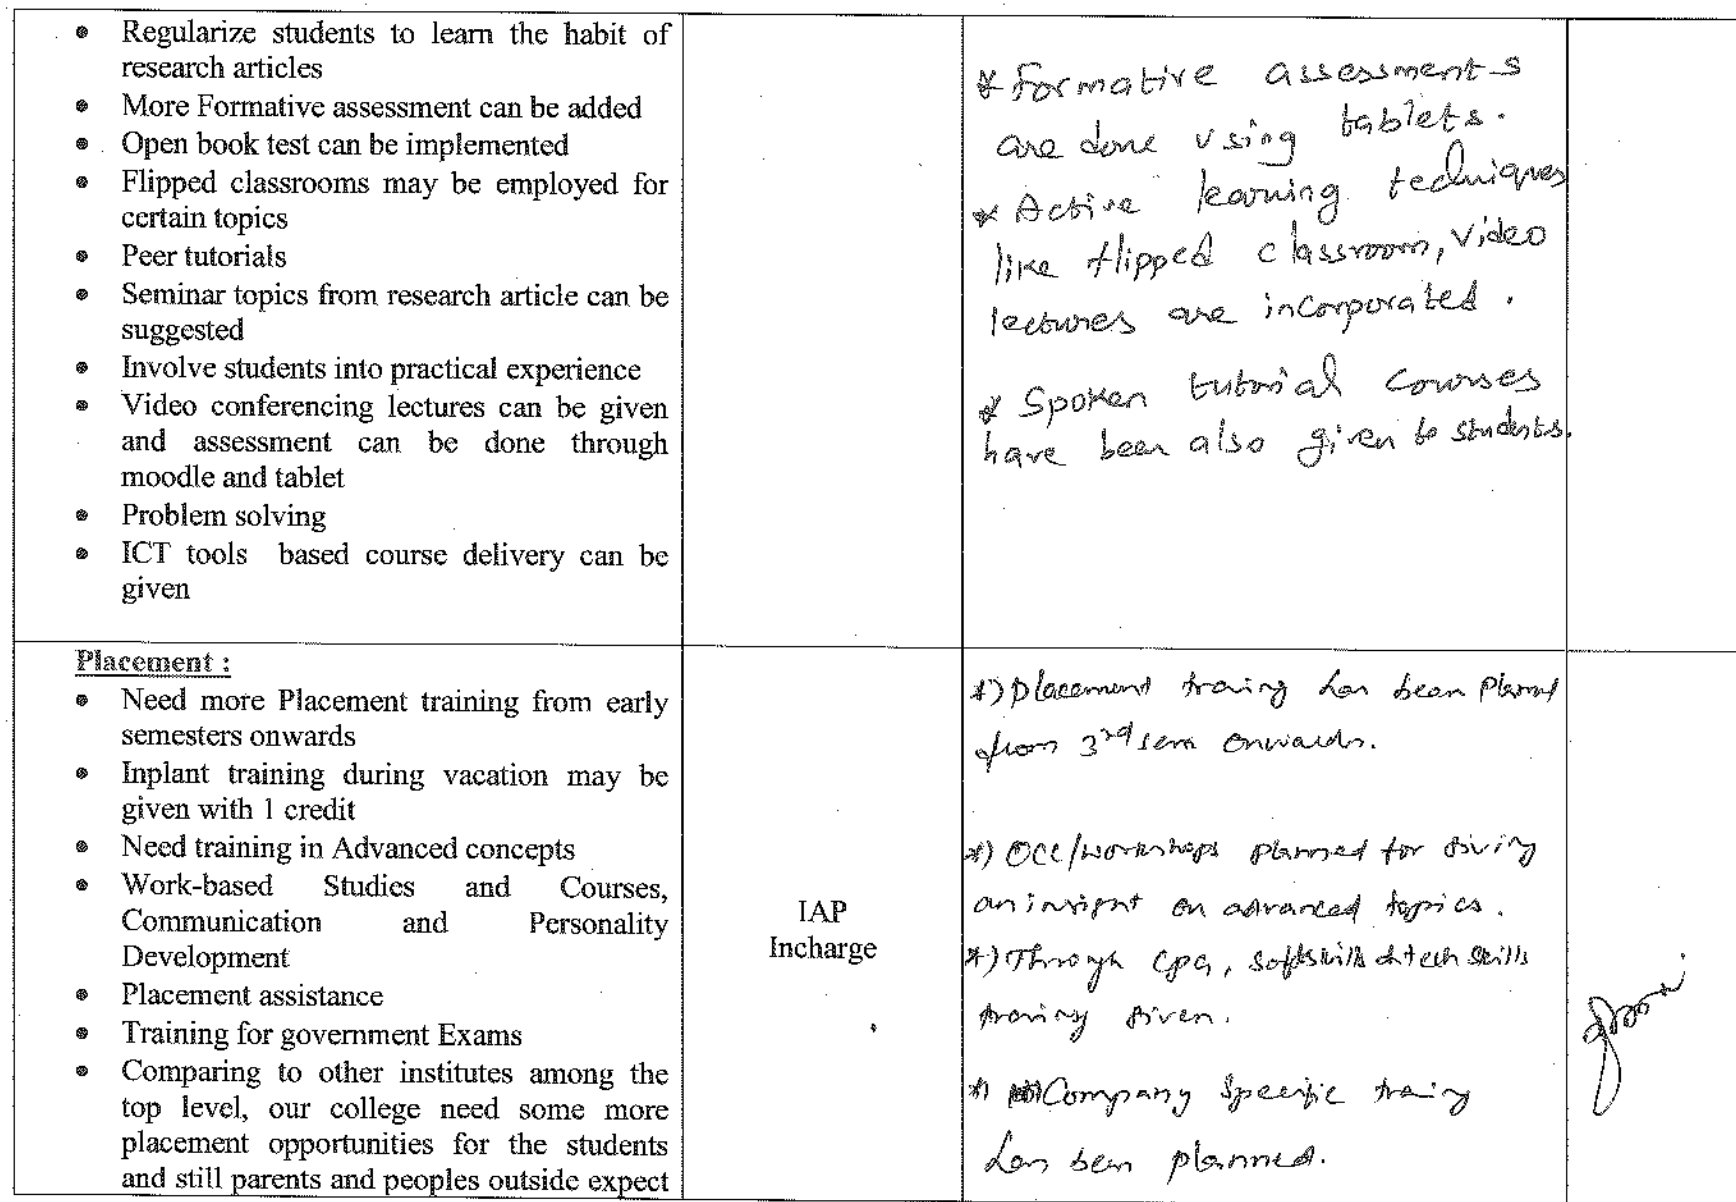 • Regularize students to learn the habit of
research articles
• More Formative assessment can be added
• Open book test can be implemented
• Flipped classrooms may be employed for
certain topics
• Peer tutorials
• Seminar topics from research article can be
suggested
• Involve students into practical experience
• Video conferencing lectures can be given
and assessment can be done through
moodle and tablet
• Problem solving
• ICT tools based course delivery can be
given
* Formative assessments
are done using tablets.
* Active learning techniques
like flipped classroom, video
lectures are incorporated.
* Spoken tutorial courses
have been also given to students.
Placement :
• Need more Placement training from early
semesters onwards
• Inplant training during vacation may be
given with 1 credit
• Need training in Advanced concepts
• Work-based Studies and Courses,
Communication and Personality
Development
• Placement assistance
• Training for government Exams
• Comparing to other institutes among the
top level, our college need some more
placement opportunities for the students
and still parents and peoples outside expect
IAP
Incharge
*) Placement training has been planned
from 3rd sem onwards.
*) OCC/workshops planned for giving
an insight on advanced topics.
*) Through CPG, softskills & tech skills
training given.
*) Company specific training
has been planned.